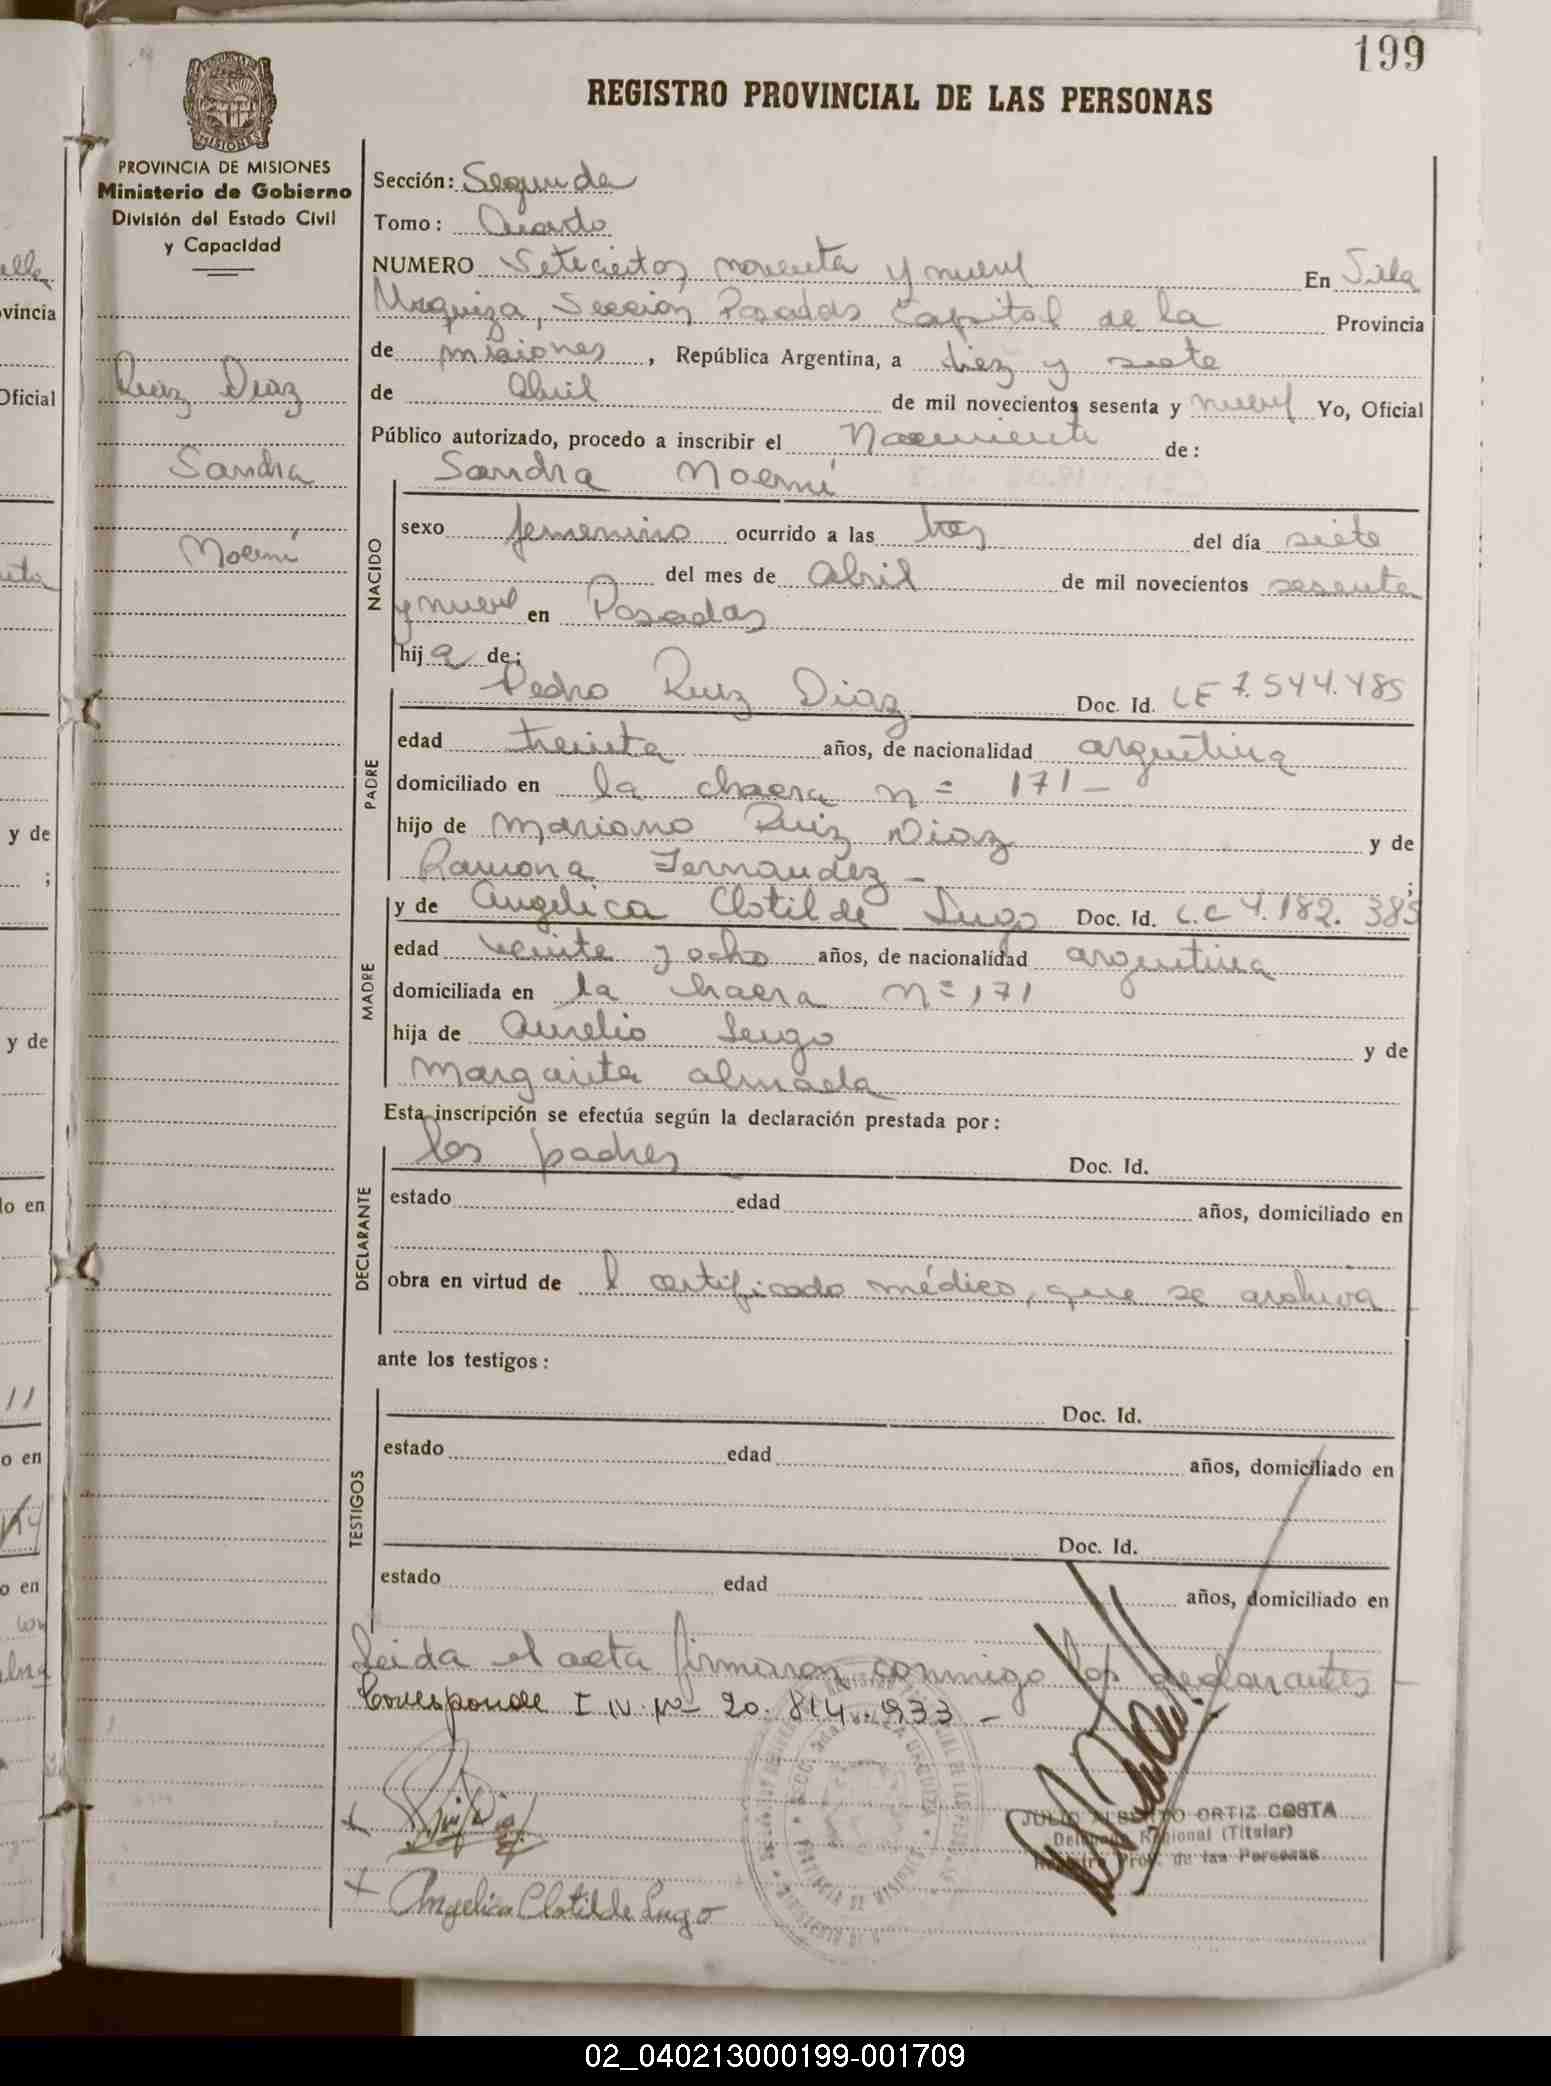 199
REGISTRO PROVINCIAL DE LAS PERSONAS
MISIONES
PROVINCIA DE MISIONES
Ministerio de Gobierno
División del Estado Civil
y Capacidad
Ruiz Diaz
Sandra
Noemí
Sección: Segunda
Tomo: Cuarto
NUMERO Setecientos noventa y nueve En Villa
Urquiza, Sección Posadas Capital de la Provincia
de misiones, República Argentina, a diez y siete
de Abril de mil novecientos sesenta y nueve Yo, Oficial
Público autorizado, procedo a inscribir el Nacimiento de:
Sandra Noemí
NACIDO
sexo femenino ocurrido a las tres del día siete
del mes de Abril de mil novecientos sesenta
y nueve en Posadas
hija de:
PADRE
Pedro Ruiz Diaz Doc. Id. LE 7.544.485
edad treinta años, de nacionalidad argentina
domiciliado en la chacra n= 171-
hijo de Mariano Ruiz Diaz y de
Ramona Fernandez - ;
MADRE
y de Angelica Clotilde Lugo Doc. Id. L.C 4.182.385
edad veinte y ocho años, de nacionalidad argentina
domiciliada en la chacra n= 171
hija de Aurelio Lugo y de
Margarita almada
Esta inscripción se efectúa según la declaración prestada por:
DECLARANTE
los padres Doc. Id.
estado edad años, domiciliado en
obra en virtud de l certificado médico, que se archiva
ante los testigos:
TESTIGOS
Doc. Id.
estado edad años, domiciliado en
Doc. Id.
estado edad años, domiciliado en
Leida el acta firmaron conmigo los declarantes
Corresponde I N. Nº 20.814.933 -
JULIO ALBERTO ORTIZ COSTA
Delegado Regional (Titular)
Registro Prov. de las Personas
Angelica Clotilde Lugo
02_040213000199-001709